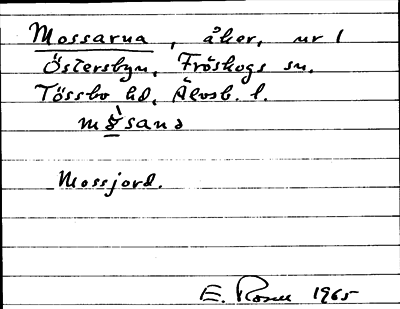 Mossarna, åker, nr 1
Östersbyn, Fröskogs sn.
Tössbo hd, Älvsb. l.
Mossjord.
E. Rosen 1965